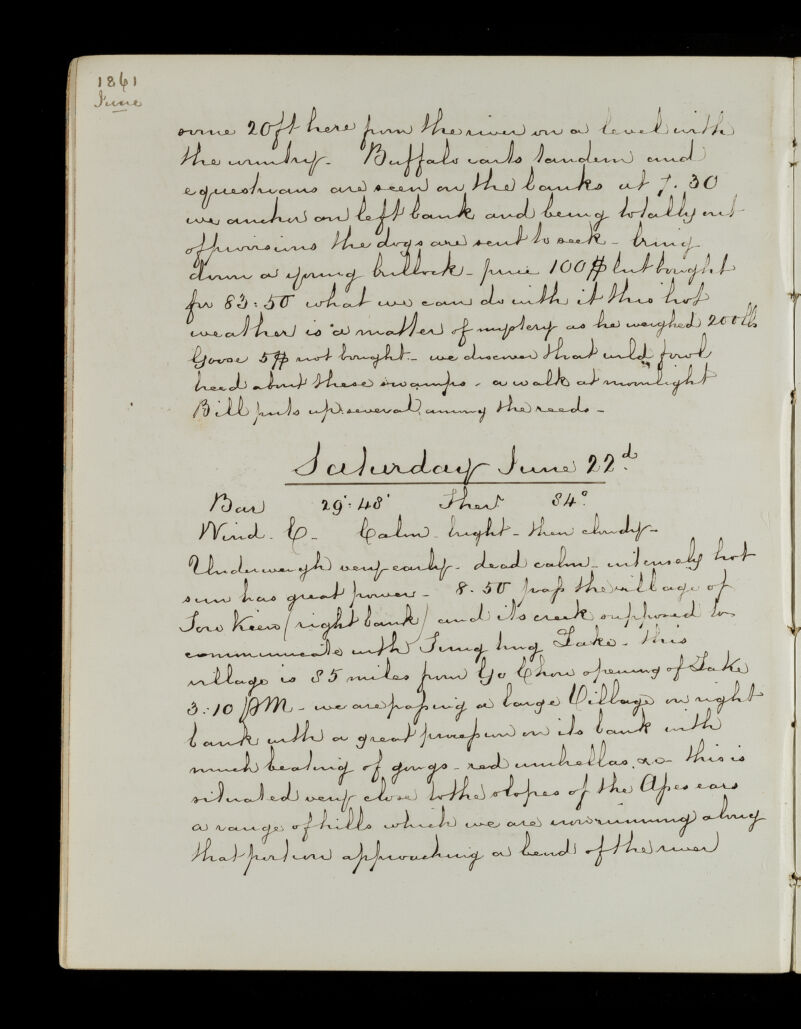 1861
June
some 20ft here from the river on a level with
the country - Buffalo carts tandem and
equestrians are seen on the banks at 7.30
we anchor on left bank and being totally out
of provisions the dogs are sent to seek - bring
down a young bullock - price 100$ but bought
for 83:50 what we can do with it this hot
weather is a matter of mystery as he weighed 200 lbs
Goose 5$ not bought - we discover that wild fowl
breed about these swamps - a walk at moonlight
Bill puts up several among the reeds -
Saturday June 22d.
Bar 29°:48' Ther 84°.
Wind. E - Calm - bright - then cloudy -
Underweigh very early - dead calm - intensely hot
sun has great power - 8.50 pass the village of
Kien (right bank) and its creek supposed to
communicate with Tung ting Lake - this
village is 85 miles from Yo Chow opening of Lake
3:10 PM - we are passing a large Village on right
bank with a great procession on its bank with
much beating of gongs - red umbrellas &c - this is
situated very close to the slopes of the Apes ears
a range of hills which we are now running along
that portion approaching a bend of the river